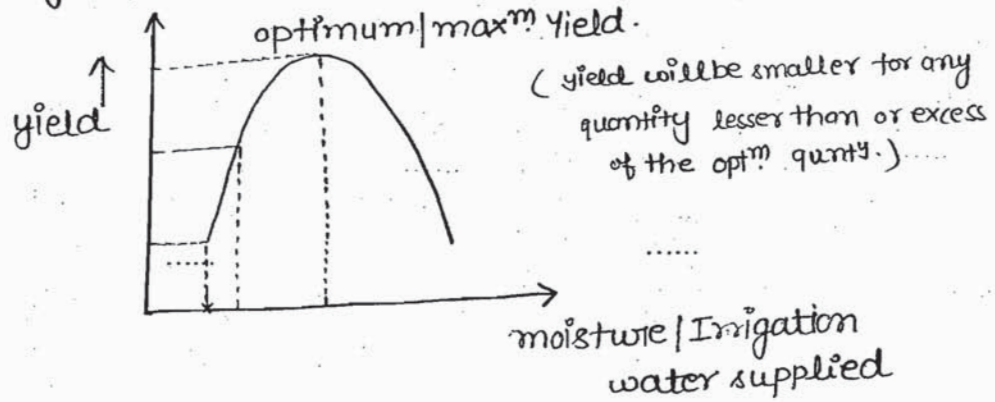 optimum/max^m. Yield.
yield
( yield will be smaller for any
quantity lesser than or excess
of the opt^m. qunty.).....
moisture/Irrigation
water supplied